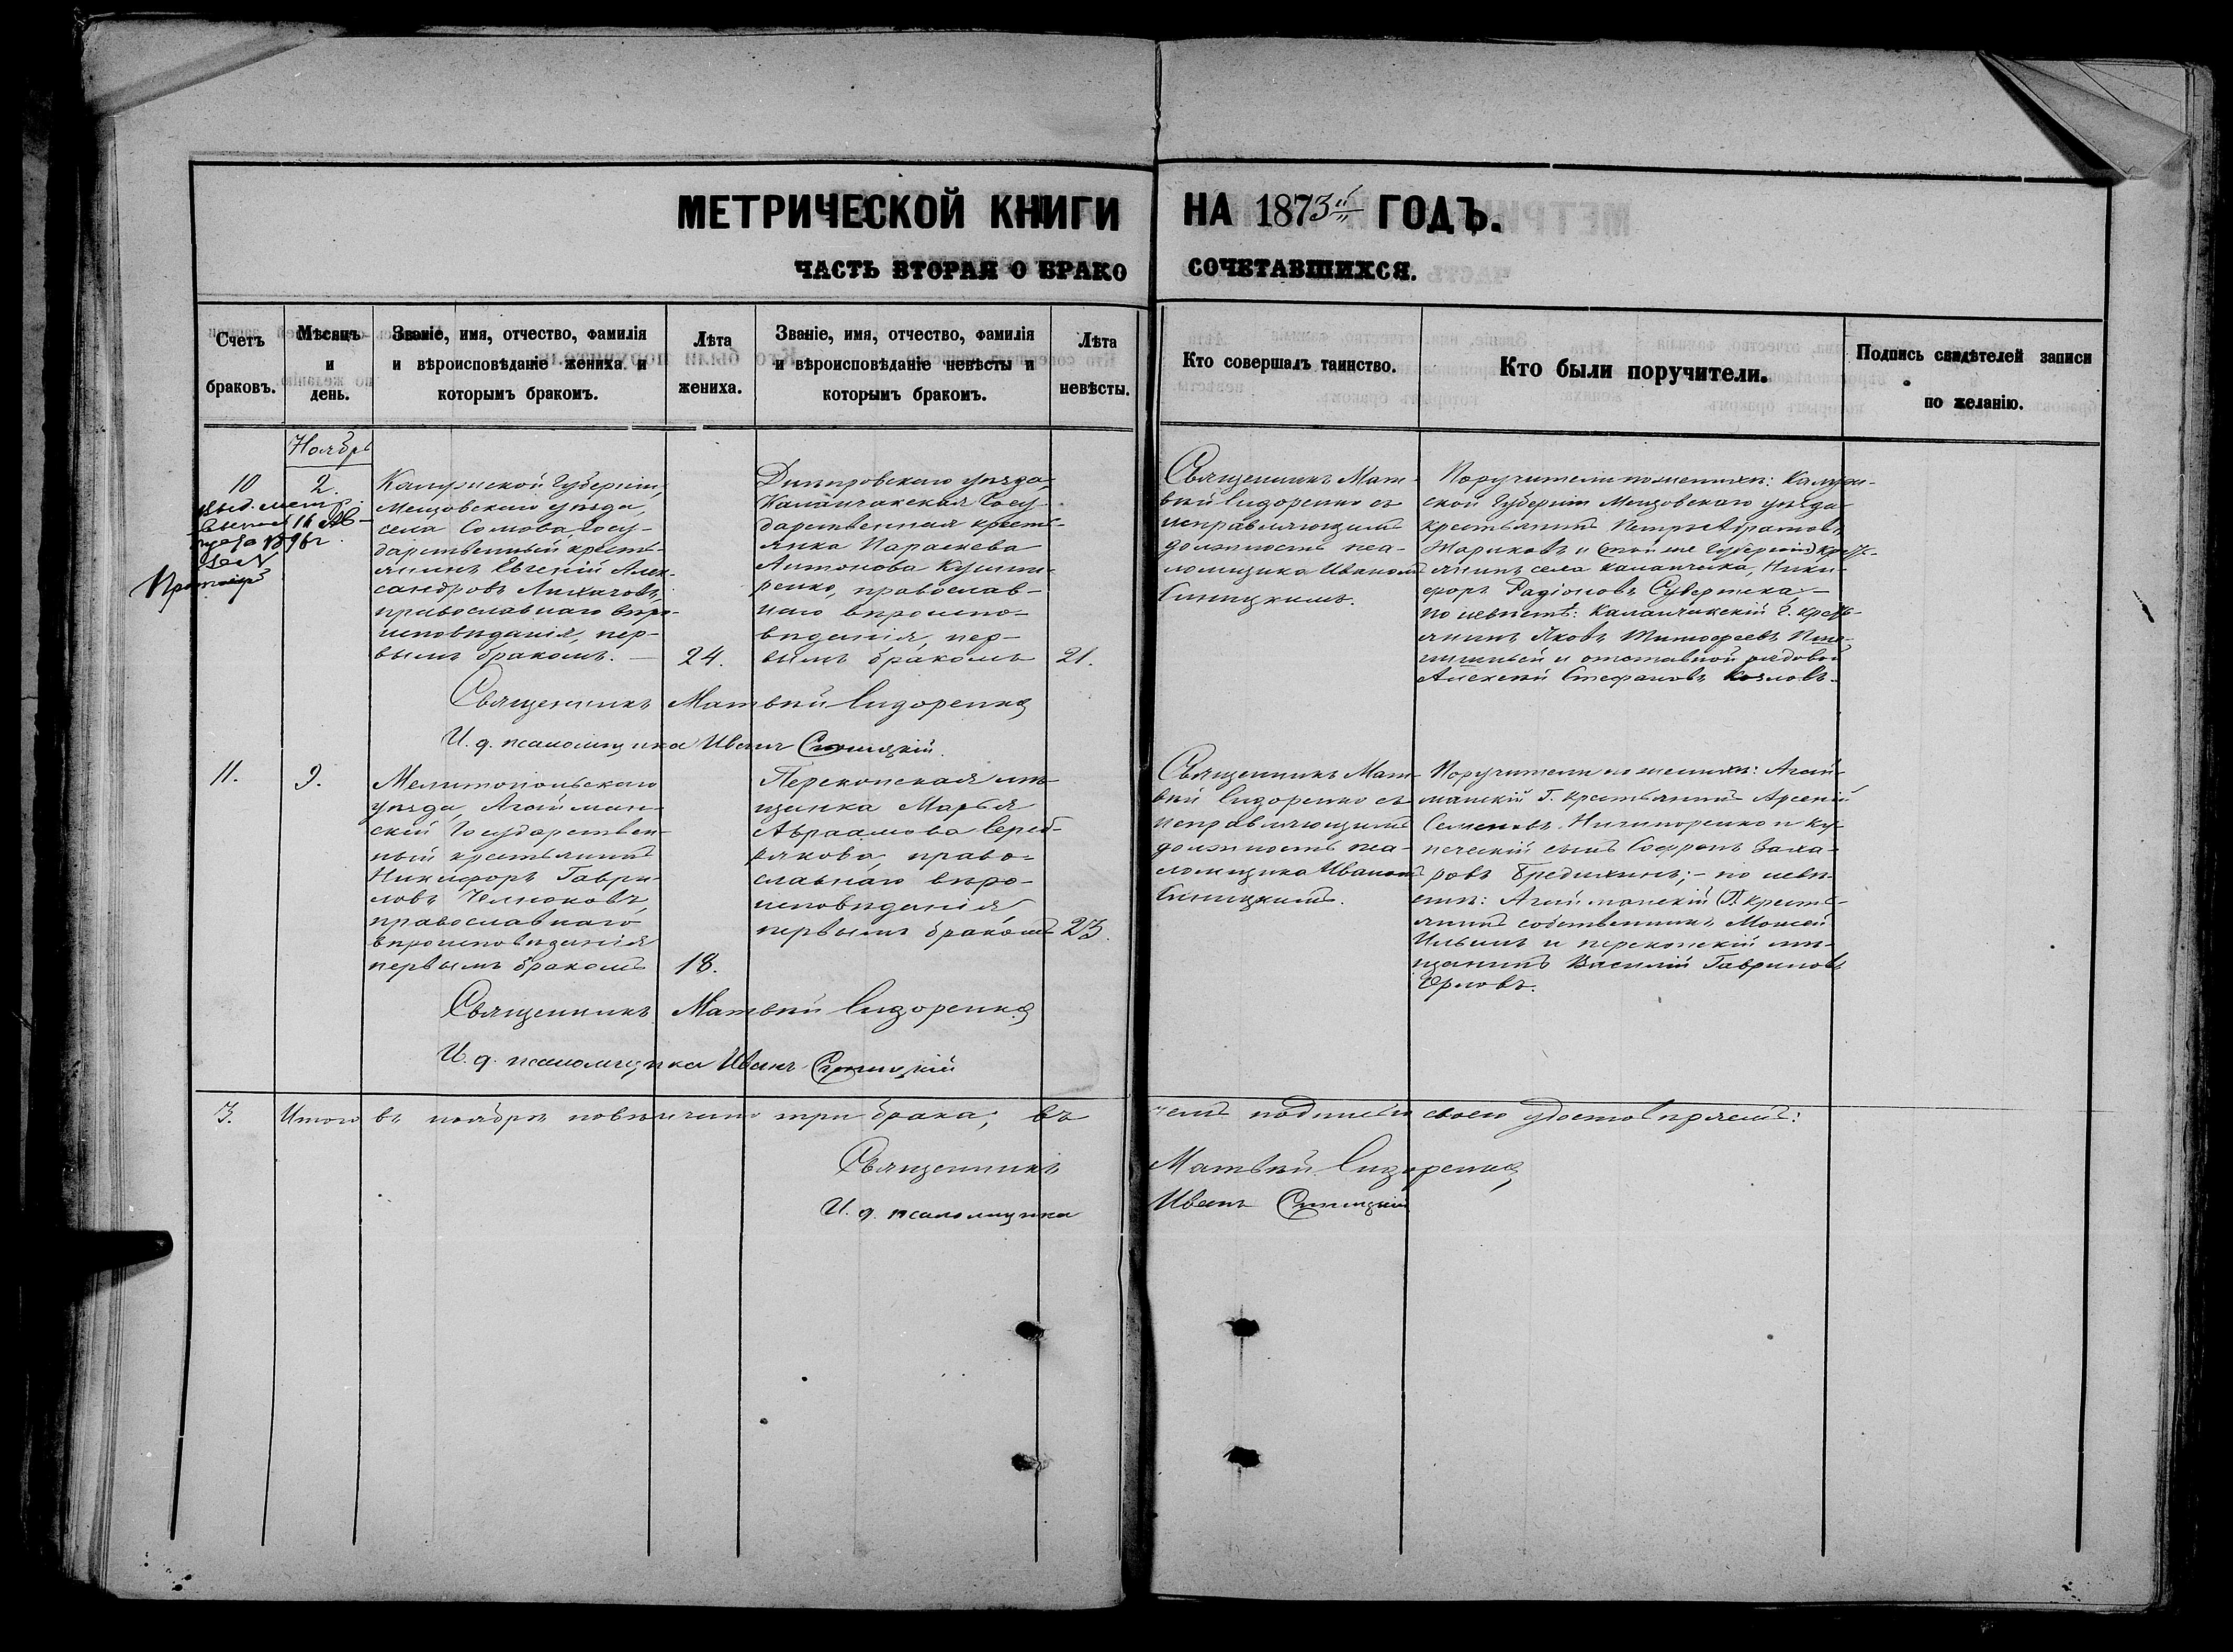 МЕТРИЧЕСКОЙ КНИГИ НА 1873й ГОДЪ.
ЧАСТЬ ВТОРАЯ О БРАКОСОЧЕТАВШИХСЯ.
Счетъ браковъ.
Мѣсяцъ и день.
Званіе, имя, отчество, фамилія
и вѣроисповѣданіе жениха и
которымъ бракомъ.
Лѣта
жениха.
Званіе, имя, отчество, фамилія
и вѣроисповѣданіе невѣсты и
которымъ бракомъ.
Лѣта
невѣсты.
Кто совершалъ таинство.
Кто были поручители.
Подпись свидѣтелей записи
по желанію.
Ноябрь
10
2.
Калужской Губерніи,
Мещовскаго уѣзда,
села Сомова, Госу-
дарственный кресть-
янинъ Евгеній Алек-
сандровъ Лихачовъ,
православнаго вѣро-
исповѣданія, пер-
вымъ бракомъ. —
24.
Днѣпровскаго уѣзда
Каланчакская Госу-
дарственная кресть-
янка Параскева
Антонова
православ-
наго вѣроиспо-
вѣданія, пер-
вымъ бракомъ
21.
Священникъ Мат-
вѣй Сидоренко съ
исправляющимъ
должность пса-
ломщика Иваномъ
Синицкимъ.
Поручители по женихѣ: Калуж-
ской Губерніи Мещовскаго уѣзда
крестьянинъ Петръ
Жариковъ и (той же Губерніи) крест-
янинъ села Каланчака, Ники-
форъ Радіоновъ
по невѣстѣ: Каланчакскій Г. крест-
янинъ Яковъ Тимофеевъ
и отставной рядовой
Алексѣй Стефановъ Козловъ.
Священникъ Матвѣй Сидоренко
И. д. псаломщика Иванъ Синицкій.
11.
9.
Мелитопольскаго
уѣзда, Агайман-
скій Государствен-
ный крестьянинъ
Никифоръ Гаври-
ловъ
православнаго
вѣроисповѣданія
первымъ бракомъ
18.
Перекопская мѣ-
щанка Марья
Авраамова Сереб-
рякова, право-
славнаго вѣро-
исповѣданія
первымъ бракомъ
23.
Священникъ Мат-
вѣй Сидоренко съ
исправляющимъ
должность пса-
ломщика Иваномъ
Синицкимъ.
Поручители по женихѣ: Агай-
манскій Г. крестьянинъ Арсеній
Семеновъ Ничипоренко и ку-
печескій сынъ Софронъ Заха-
ровъ Бредихинъ; - по невѣ-
стѣ: Агайманскій Г. кресть-
янинъ собственникъ Моисей
Ильинъ и перекопскій мѣ-
щанинъ Василій Гавриловъ
Орловъ.
Священникъ Матвѣй Сидоренко
И. д. псаломщика Иванъ Синицкій
3. Итого въ ноябрѣ повѣнчано три брака; въ чемъ подписью своею удостовѣряемъ:
Священникъ Матвѣй Сидоренко
И. д. псаломщика Иванъ Синицкій